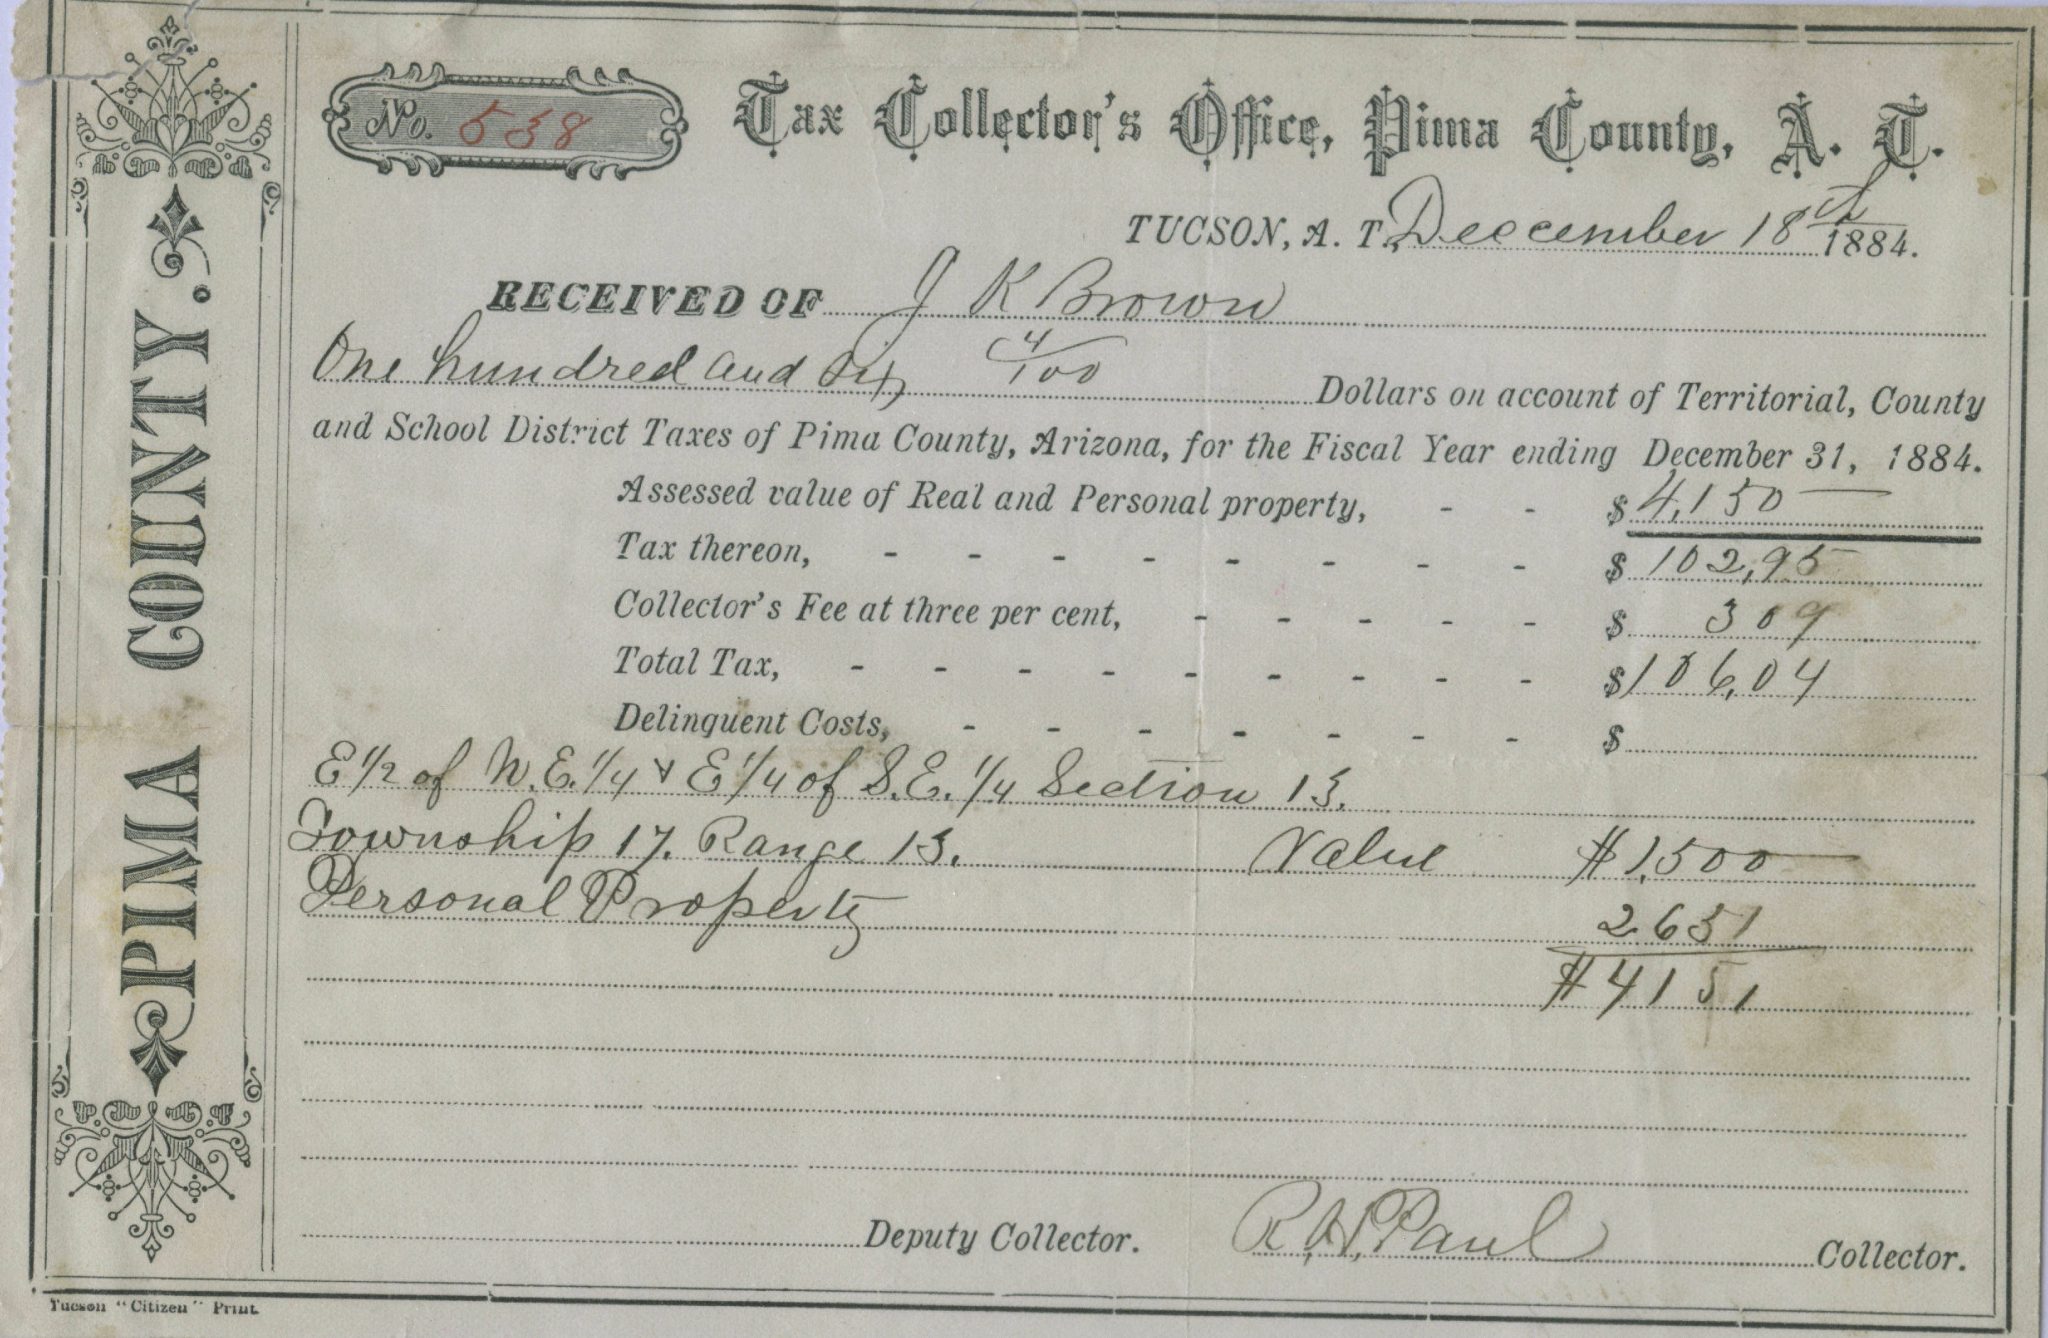 PIMA COUNTY.
No. 538
Tax Collector's Office, Pima County, A. T.
TUCSON, A. T., December 18th 1884.
RECEIVED OF J K Brown
One hundred and six 4/100 Dollars on account of Territorial, County
and School District Taxes of Pima County, Arizona, for the Fiscal Year ending December 31, 1884.
Assessed value of Real and Personal property, - - $ 4,150
Tax thereon, - - - - - - - - $ 102,95
Collector's Fee at three per cent, - - - - - $ 309
Total Tax, - - - - - - - - - $ 106,04
Delinquent Costs, - - - - - - - $
E 1/2 of N.E. 1/4 & E 1/4 of S.E. 1/4 Section 13.
Township 17. Range 13. Value $1,500
Personal Property 2651
$4151
Deputy Collector. R. H. Paul Collector.
Tucson "Citizen" Print.